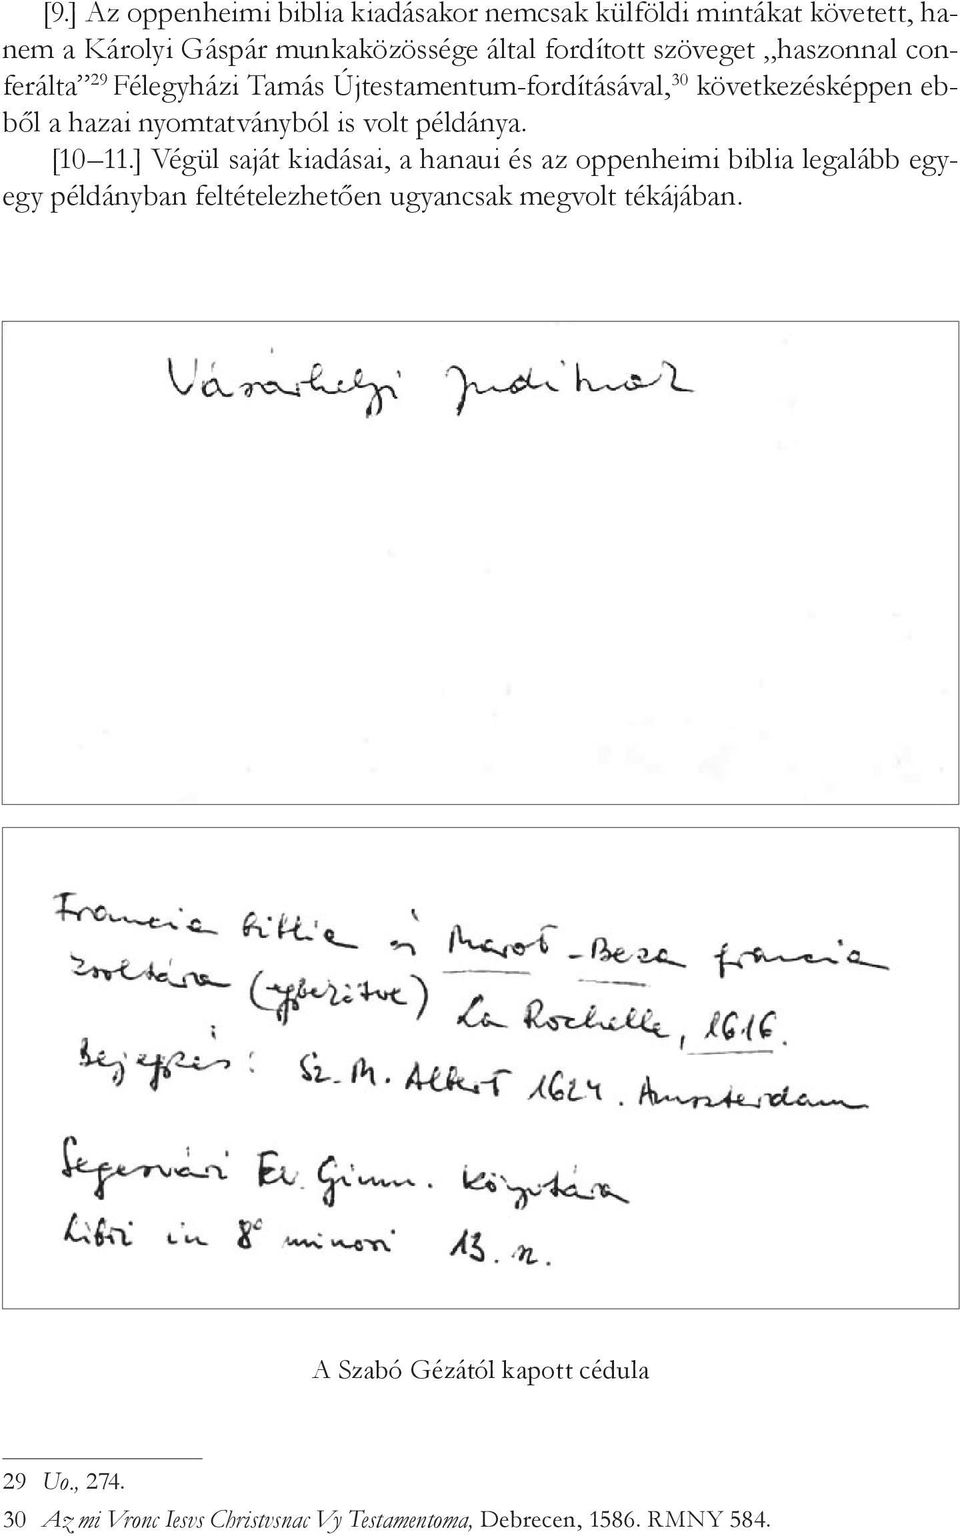 [9.] Az oppenheimi biblia kiadásakor nemcsak külföldi mintákat követett, ha-
nem a Károlyi Gáspár munkaközössége által fordított szöveget „haszonnal con-
ferálta”29 Félegyházi Tamás Újtestamentum-fordításával,30 következésképpen eb-
ből a hazai nyomtatványból is volt példánya.
[10–11.] Végül saját kiadásai, a hanaui és az oppenheimi biblia legalább egy-
egy példányban feltételezhetően ugyancsak megvolt tékájában.
Vásárhelyi Judithoz
Francia biblia és Marot-Beza francia
zsoltára (egybekötve) La Rochelle, 1616.
Bejegyzés: Sz. M. Albert 1624. Amszterdam
Segesvári Ev. Gimn. Könyvtára
Libri in 8° minori 13. n.
A Szabó Gézától kapott cédula
29 Uo., 274.
30 Az mi Vronc Iesvs Christvsnac Vy Testamentoma, Debrecen, 1586. RMNY 584.